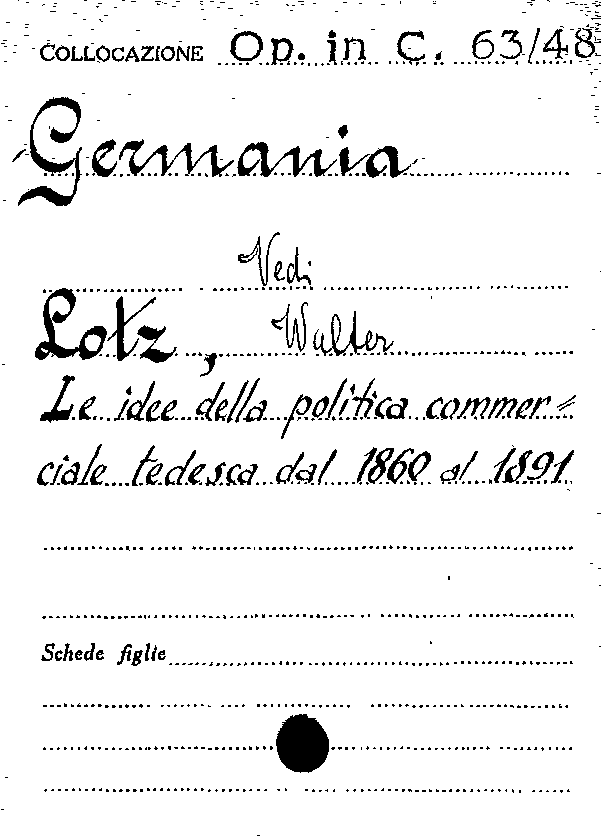 COLLOCAZIONE Op. in C. 63/48
Germania
Vedi
Lotz, Walter
Le idee della politica commer=
ciale tedesca dal 1860 al 1891
Schede figlie